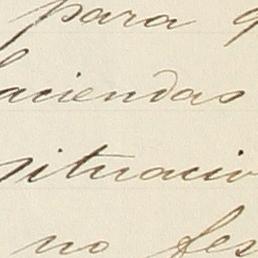 para q
haciendas
situacio
no fes